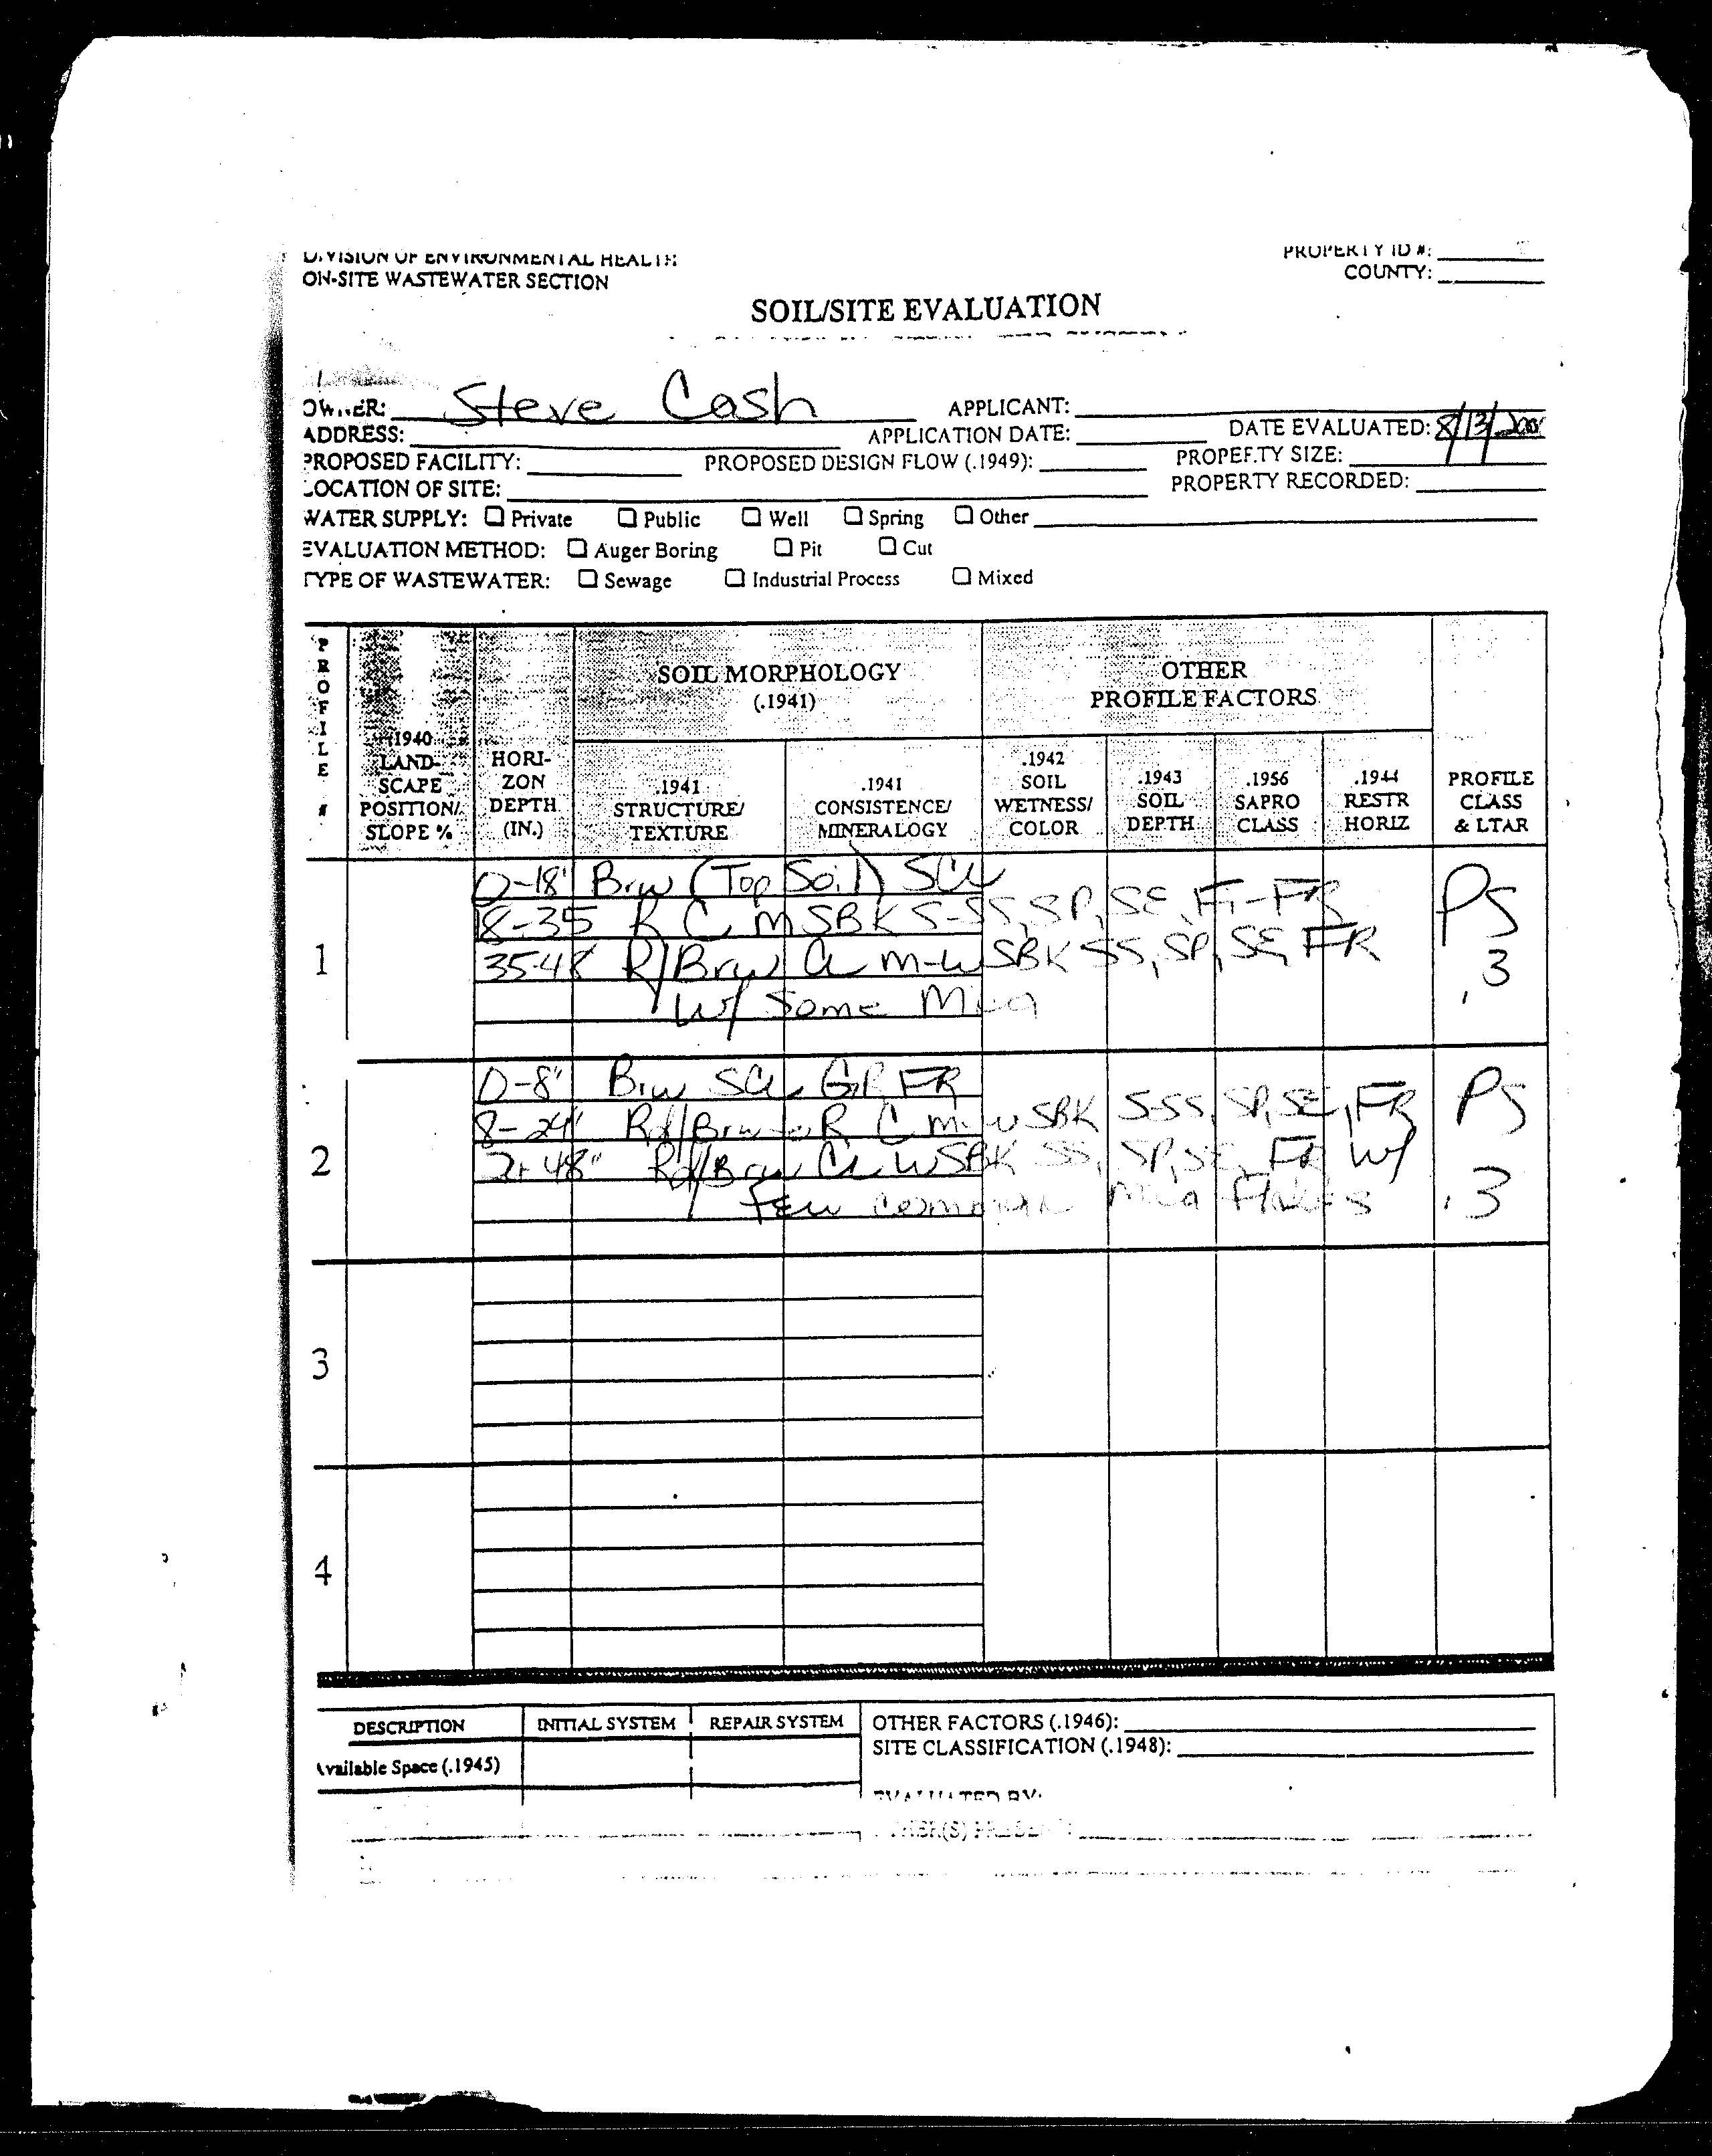 DIVISION OF ENVIRONMENTAL HEALTH
ON-SITE WASTEWATER SECTION
PROPERTY ID #:
COUNTY:
SOIL/SITE EVALUATION
OWNER: Steve Cash APPLICANT:
ADDRESS: APPLICATION DATE: DATE EVALUATED: 8/13/
PROPOSED FACILITY: PROPOSED DESIGN FLOW (.1949): PROPERTY SIZE:
LOCATION OF SITE: PROPERTY RECORDED:
WATER SUPPLY: Private Public Well Spring Other
EVALUATION METHOD: Auger Boring Pit Cut
TYPE OF WASTEWATER: Sewage Industrial Process Mixed
PROFILE #
.1940 LAND-SCAPE POSITION/ SLOPE %
HORI-ZON DEPTH (IN.)
SOIL MORPHOLOGY (.1941)
OTHER PROFILE FACTORS
.1941 STRUCTURE/ TEXTURE
.1941 CONSISTENCE/ MINERALOGY
.1942 SOIL WETNESS/ COLOR
.1943 SOIL DEPTH
.1956 SAPRO CLASS
.1944 RESTR HORIZ
PROFILE CLASS & LTAR
1
0-18" Brw (Top Soil) SCL
18-35 R C M SBK S-SS, SP, SE, Fi-FR
35-48 R/Brw CL M-W SBK SS, SP, SE, FR
W/ Some Mica
PS
.3
2
0-8" Brw SCL GR FR
8-24" Rd/Brw to R C M-W SBK S-SS, SP, SE, FR
24-48" Rd/Brw CL W SBK SS, SP, SE, FR W/
Few common Mica Flakes
PS
.3
3
4
DESCRIPTION INITIAL SYSTEM REPAIR SYSTEM
Available Space (.1945)
OTHER FACTORS (.1946):
SITE CLASSIFICATION (.1948):
EVALUATED BY: